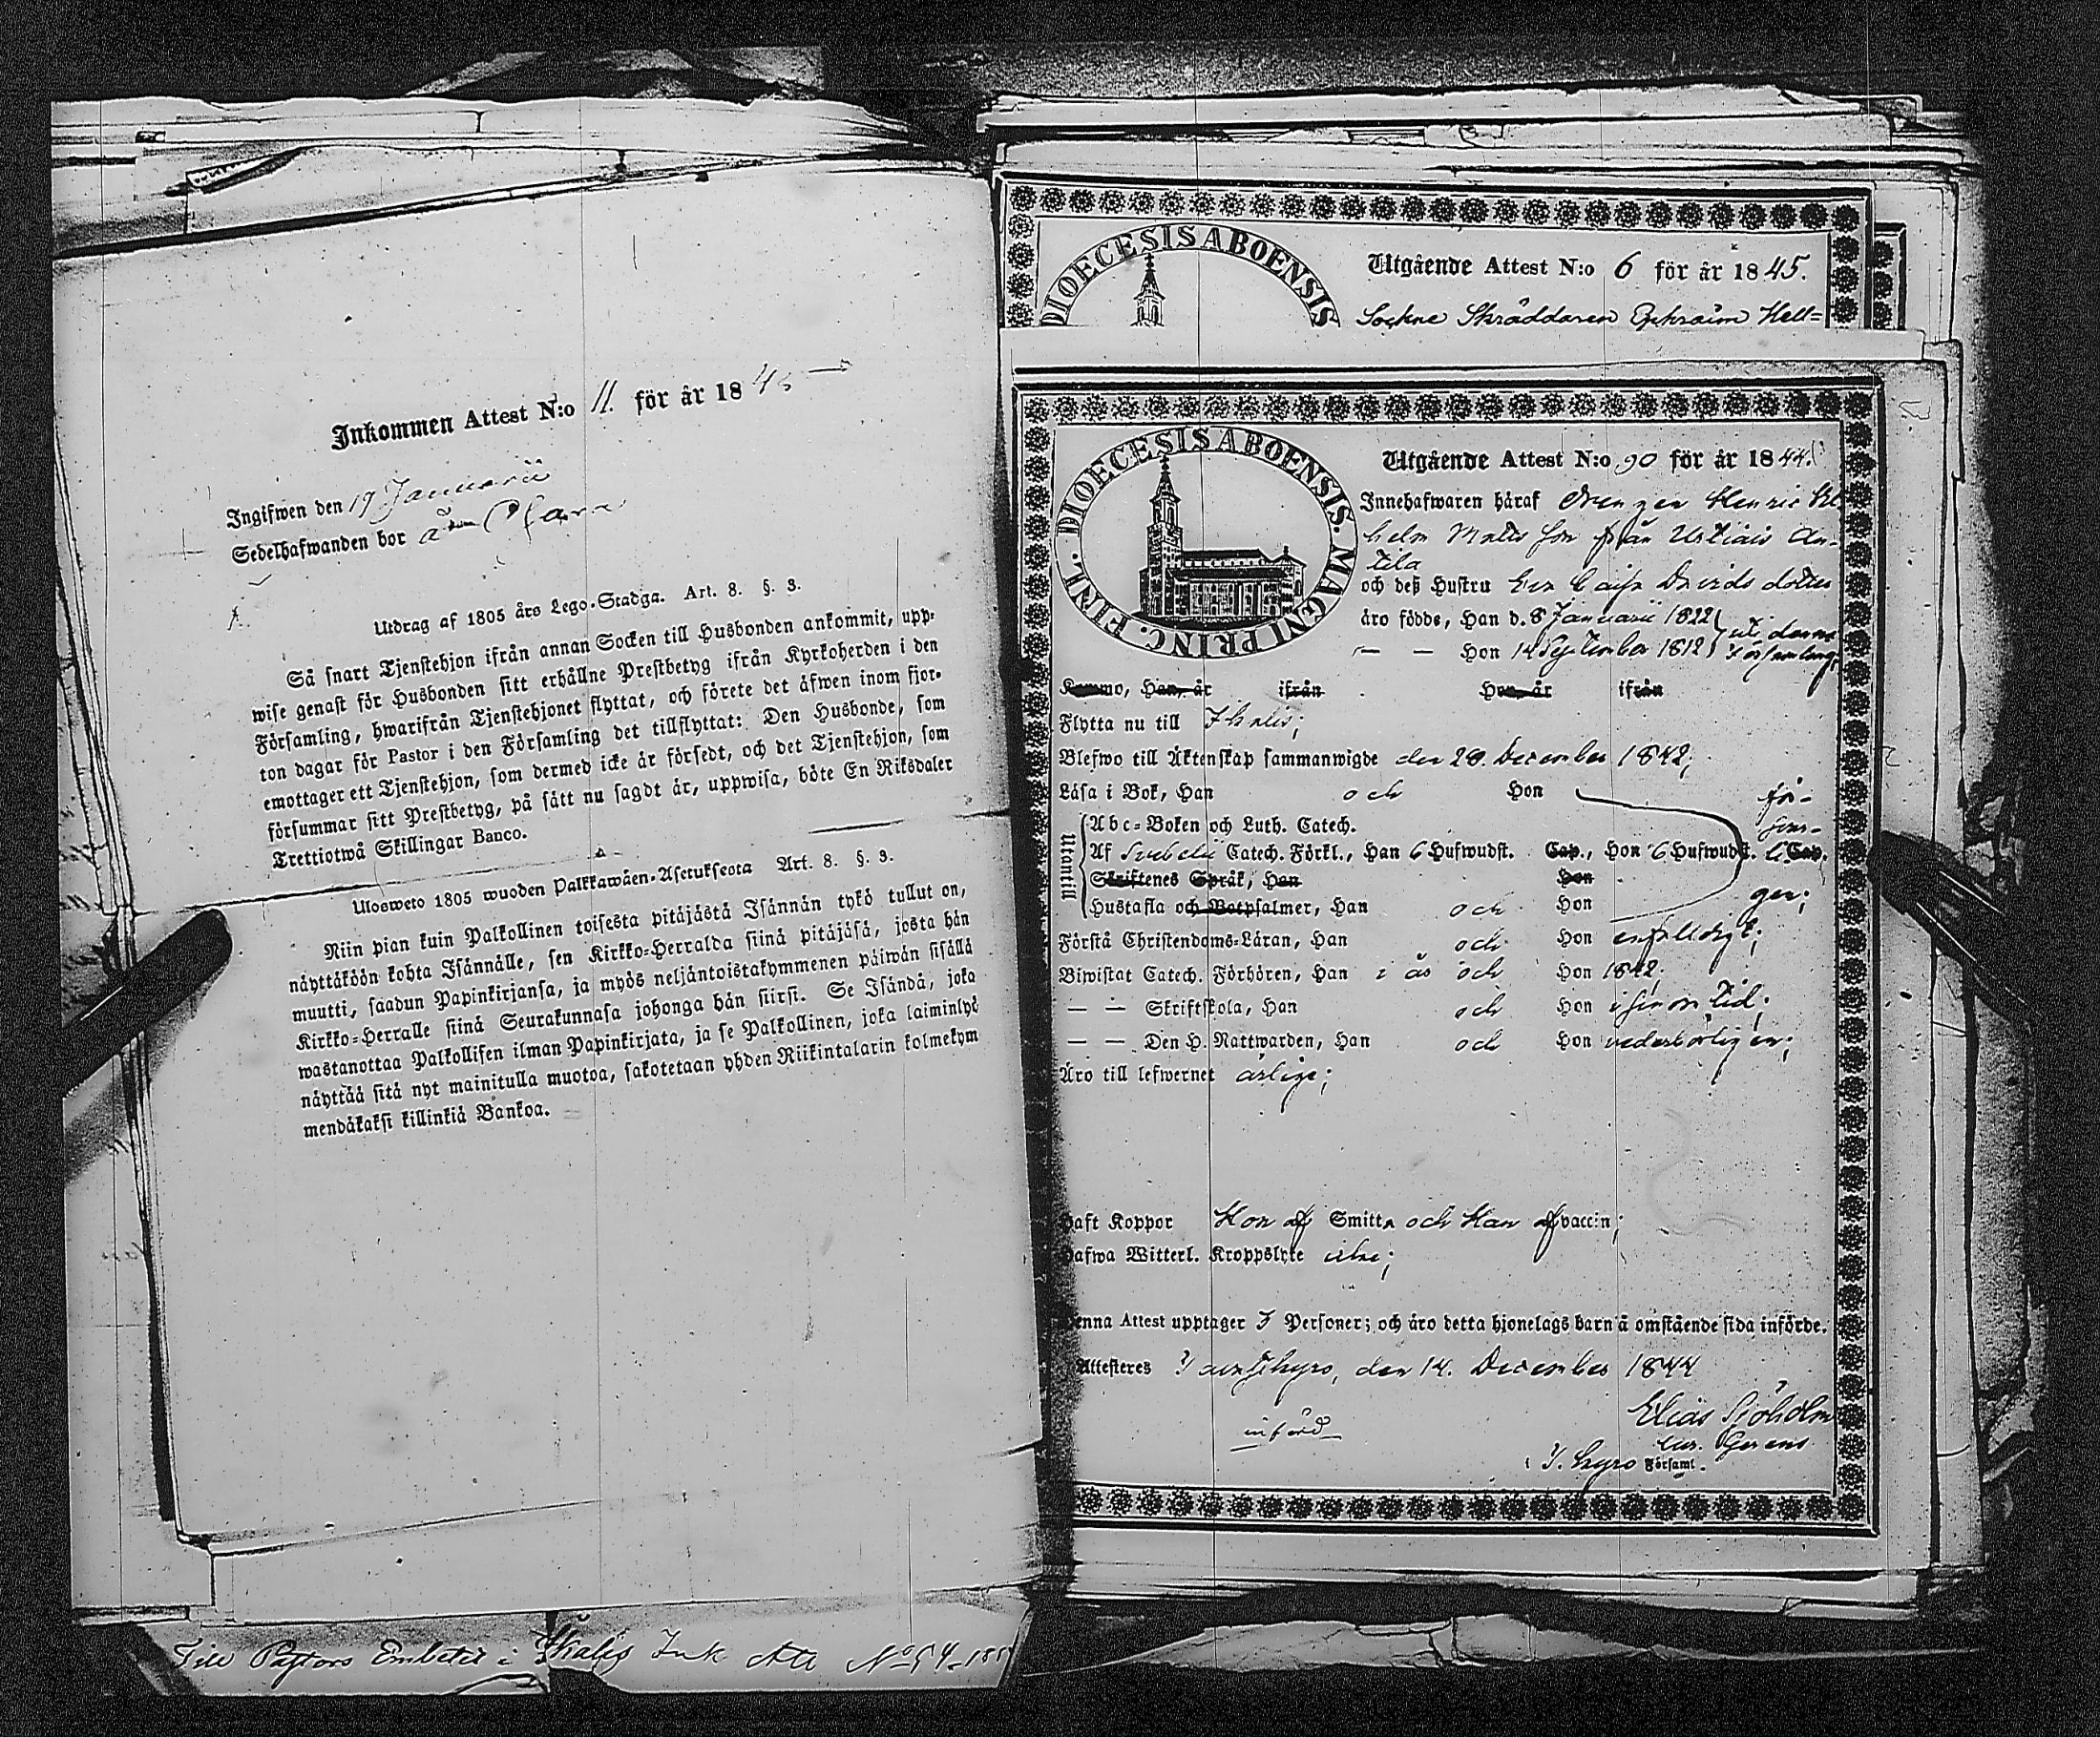 Inkommen Attest N:o 11. för år 1845
Ingifwen den 19 Januarii
Sedelhafwanden bor å
Utdrag af 1805 års Lego-Stadga. Art. 8. §. 3.
Så snart Tjenstehjon ifrån annan Socken till Husbonden ankommit, upp-
wise genast för Husbonden sitt erhållne Prestbetyg ifrån Kyrkoherden i den
Församling, hwarifrån Tjenstehjonet flyttat, och förete det äfwen inom fjor-
ton dagar för Pastor i den Församling det tillflyttat: Den Husbonde, som
emottager ett Tjenstehjon, som dermed icke är försedt, och det Tjenstehjon, som
försummar sitt Prestbetyg, på sätt nu sagdt är, uppwisa, böte En Riksdaler
Trettiotwå Skillingar Banco.
Ulosweto 1805 wuoden Palkkawäen-Asetuksesta Art. 8. §. 3.
Niin pian kuin Palkollinen toisesta pitäjästä Isännän tykö tullut on,
näyttäköön kohta Isännälle, sen Kirkko-Herralda siinä pitäjäsä, josta hän
muutti, saadun Papinkirjansa, ja myös neljäntoistakymmenen päiwän sisällä
Kirkko-Herralle siinä Seurakunnasa johonga hän siirsi. Se Isändä, joka
wastanottaa Palkollisen ilman Papinkirjata, ja se Palkollinen, joka laiminlyö
näyttää sitä nyt mainitulla muotoa, sakotetaan yhden Riikintalarin kolmekym
mendäkaksi killinkiä Bankoa.
Till Pastors Embetet i Ikalis Ink Att No 54
DIOECESIS ABOENSIS
Utgående Attest N:o 6 för år 1845.
Sockne Skräddaren Ephraim Hell=
DIOECESIS ABOENSIS. MAGNI PRINC. FINL.
Utgående Attest N:o 90 för år 1844.
Innehafwaren häraf Drengen Henric Wil
helm Matts son från Urtiais An-
tila
och deß Hustru Eva Caisa Davids dotter
äro födde, Han d. 8 Januarii 1822 uti denna
— — Hon 14 September 1812 Församling;
Kommo, Han, år ifrån Hon, år ifrån
Flytta nu till Ikalis;
Blefwo till Äktenskap sammanwigde den 28. December 1842;
Läsa i Bok, Han och Hon för-
Utantill
Abc-Boken och Luth. Catech.
Af Svebelii Catech. Förkl., Han 6 Hufwudst. Cap., Hon 6 Hufwudst. Cap.
Skriftenes Språk, Han Hon
Hustafla och Botpsalmer, Han och Hon gen;
Förstå Christendoms-Läran, Han och Hon enfalldigt;
Biwistat Catech. Förhören, Han i år och Hon 1842.
— — Skriftskola, Han och Hon i sinom tid;
— — Den H. Nattwarden, Han och Hon vederbörligen;
Äro till lefwernet ärlige;
Haft Koppor Hon af Smitta och Han af vaccin;
Hafwa Witterl. Kroppslyte icke;
Denna Attest upptager 3 Personer; och äro detta hjonelags barn å omstående sida införde.
Attesteres Tavastkyro, den 14. December 1844
införd
Elias Sjöholm
Cur. Gerens
i T. Kyro Församl.